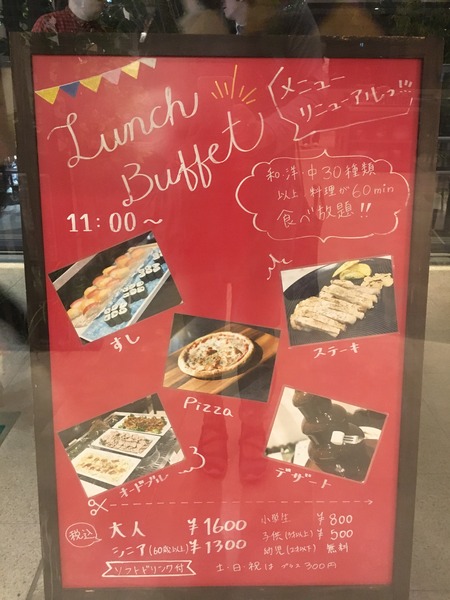 Lunch
Buffet
メニュー
リニューアルっ!!!
11:00～
和・洋・中30種類
以上 料理が60min
食べ放題!!
すし
ステーキ
Pizza
オードブル
デザート
税込
大人 ¥1600
シニア(60歳以上) ¥1300
ソフトドリンク付
小学生 ¥800
子供(4才以上) ¥500
幼児(3才以下) 無料
土・日・祝は プラス300円